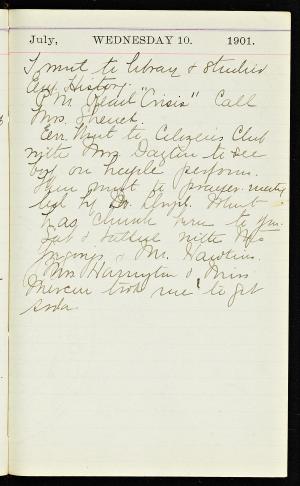 July, WEDNESDAY 10. 1901.
I went to library & studied
Am History.
P.M. Read "Crisis" Call
Mrs.
Eve. Went to Citizens Club
with Mrs Dayton to see
boy on bicycle perform.
Then went to prayer meeting
led by Dr.
has church here to
Sat & talked with Mrs
& Mr. Hawkins.
Mrs Harrington & Miss
Mercer took me to get
soda.